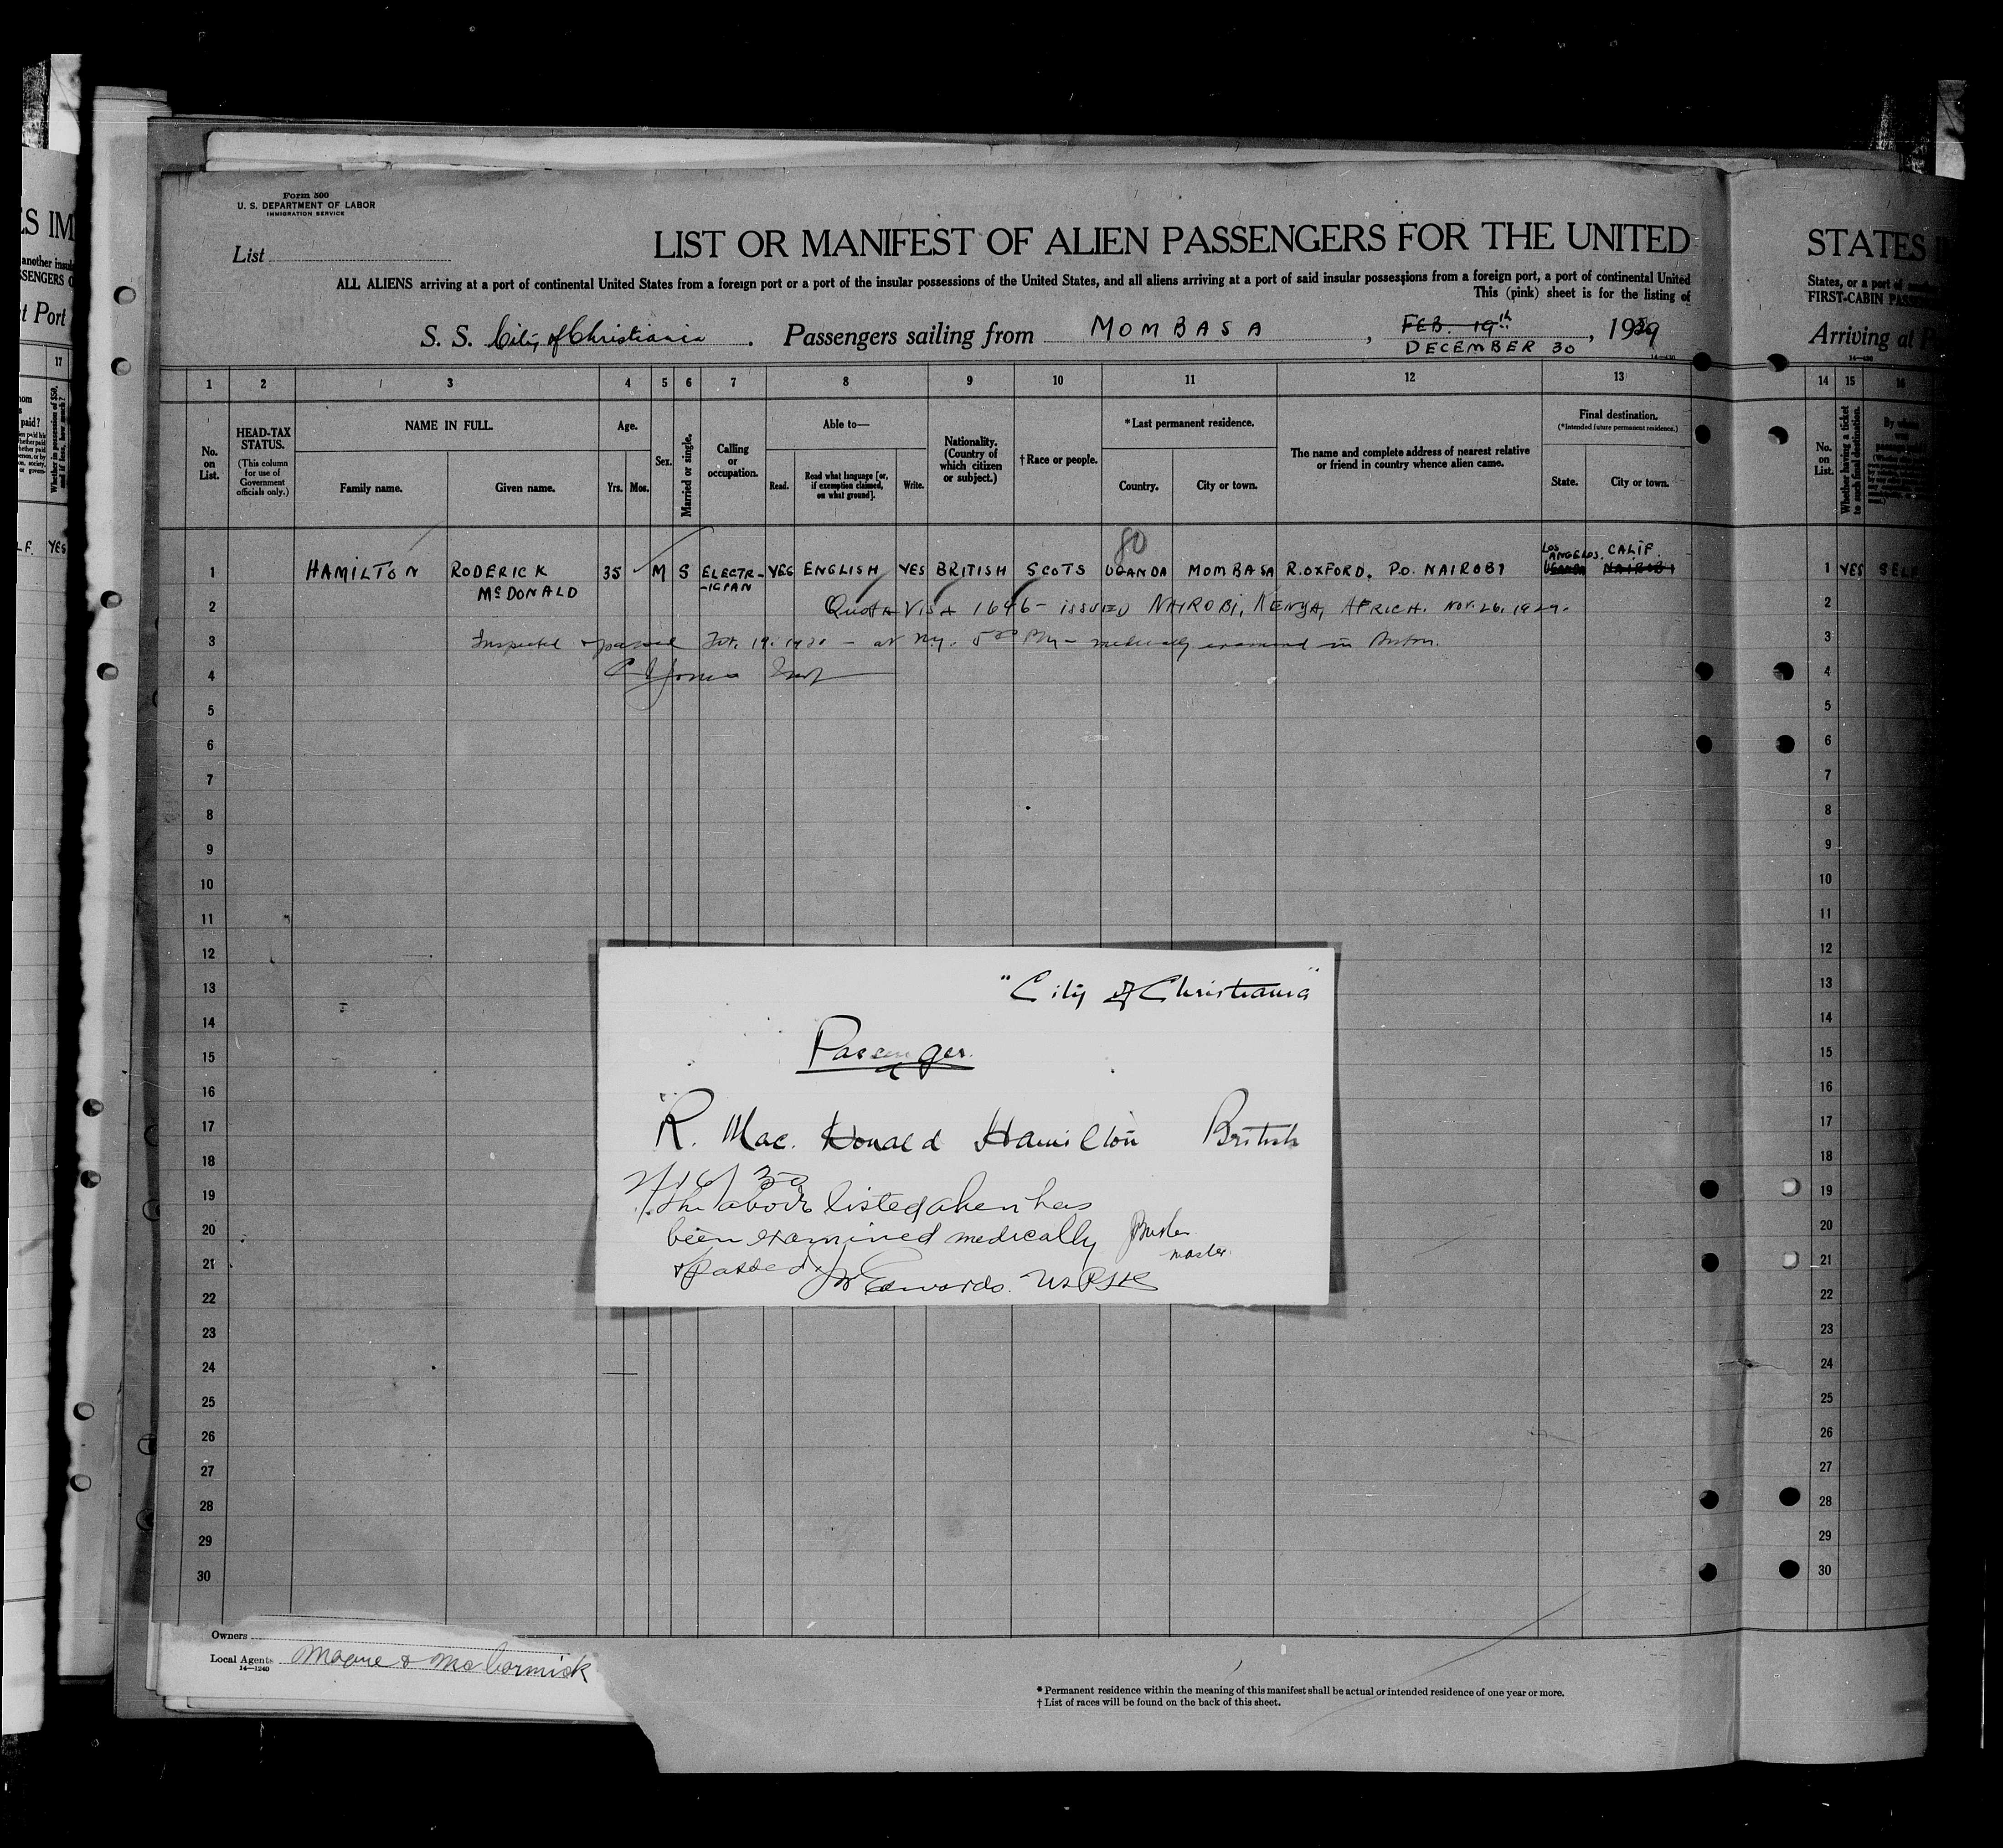 Form 500
U. S. DEPARTMENT OF LABOR
IMMIGRATION SERVICE
List
LIST OR MANIFEST OF ALIEN PASSENGERS FOR THE UNITED
ALL ALIENS arriving at a port of continental United States from a foreign port or a port of the insular possessions of the United States, and all aliens arriving at a port of said insular possessions from a foreign port, a port of continental United
This (pink) sheet is for the listing of
S. S. City of Christiania. Passengers sailing from MOMBASA, FEB. 19th, 1929
DECEMBER 30
14—430
1 2 3 4 5 6 7 8 9 10 11 12 13
No. on List.
HEAD-TAX STATUS.
(This column for use of Government officials only.)
NAME IN FULL.
Family name. Given name.
Age.
Yrs. Mos.
Sex.
Married or single.
Calling or occupation.
Able to—
Read. Read what language [or, if exemption claimed, on what ground]. Write.
Nationality. (Country of which citizen or subject.)
†Race or people.
*Last permanent residence.
Country. City or town.
The name and complete address of nearest relative or friend in country whence alien came.
Final destination.
(*Intended future permanent residence.)
State. City or town.
80
LOS ANGELOS. CALIF.
1 HAMILTON RODERICK 35 M S ELECTR- YES ENGLISH YES BRITISH SCOTS UGANDA MOMBASA R.OXFORD, P.O. NAIROBI UGANDA NAIROBI
McDONALD -ICIAN
2 Quota Visa 1646 - issued NAIROBI, KENYA, AFRICA. Nov. 26. 1929.
3 Inspected & passed Feb. 19. 1930 - at N.Y. 5 00 PM - medically examined in Boston.
4
5
6
7
8
9
10
11
12
13
14
15
16
17
18
19
20
21
22
23
24
25
26
27
28
29
30
"City of Christiania"
Passenger.
R. Mac. Donald Hamilton British
2/16/30
The above listed alien has
been examined medically
master
& passed. Edwards. USPHS
Owners
Local Agents Moore & McCormick
14—1240
* Permanent residence within the meaning of this manifest shall be actual or intended residence of one year or more.
† List of races will be found on the back of this sheet.
STATES
States, or a port of
FIRST-CABIN
Arriving at
14—430
14 15 16
No. on List.
Whether having a ticket to such final destination.
By whom was
1 YES SELF
2
3
4
5
6
7
8
9
10
11
12
13
14
15
16
17
18
19
20
21
22
23
24
25
26
27
28
29
30
Port
17
paid?
Whether in possession of $50, and if less, how much?
YES